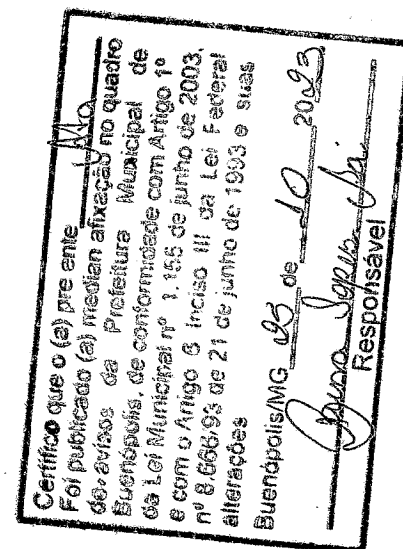 Certifico que o (a) pre ente Ata
Foi publicado (a) median afixação no quadro
de avisos da Prefeitura Municipal de
Buenópolis, de conformidade com Artigo 1º
da Lei Municipal nº 1.156 de junho de 2003,
e com o Artigo 6 Inciso III da Lei Federal
nº 8.666/93 de 21 de junho de 1993 e suas
alterações
Buenópolis/MG 25 de 10 2023
Responsável